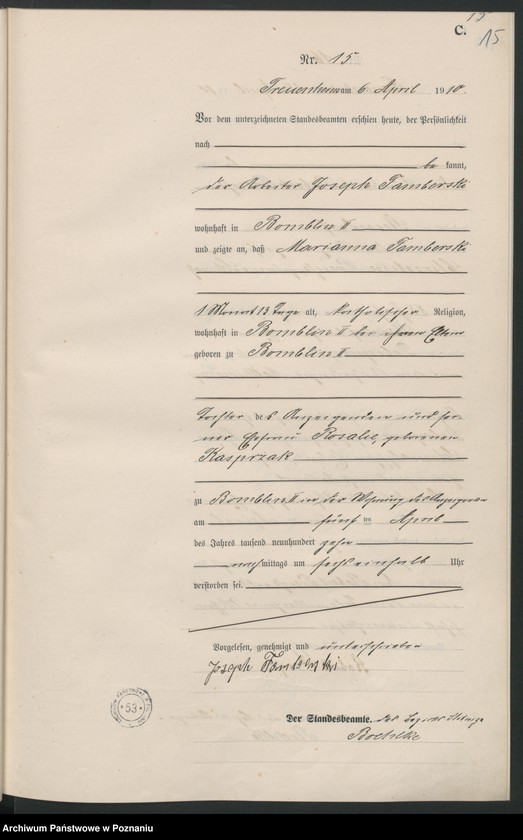 15
C.
15
Nr. 15
am 6 April 1910.
Vor dem unterzeichneten Standesbeamten erschien heute, der Persönlichkeit
nach
be kannt,
der Arbeiter Joseph Tamberski
wohnhaft in Bomblin II
und zeigte an, daß Marianna Tamberski
1 Monat 13 Tage alt, katholischer Religion,
wohnhaft in Bomblin II bei ihren Eltern
geboren zu Bomblin II
Tochter des Anzeigenden und sei-
ner Ehefrau Rosalie, geborenen
Kasprzak
zu Bomblin II in der Wohnung des Anzeigenden
am fünf ten April
des Jahres tausend neunhundert zehn
nachmittags um sechseinhalb Uhr
verstorben sei.
Vorgelesen, genehmigt und unterschrieben
Joseph Tamberski
53
Der Standesbeamte.
Boehlke
Archiwum Państwowe w Poznaniu